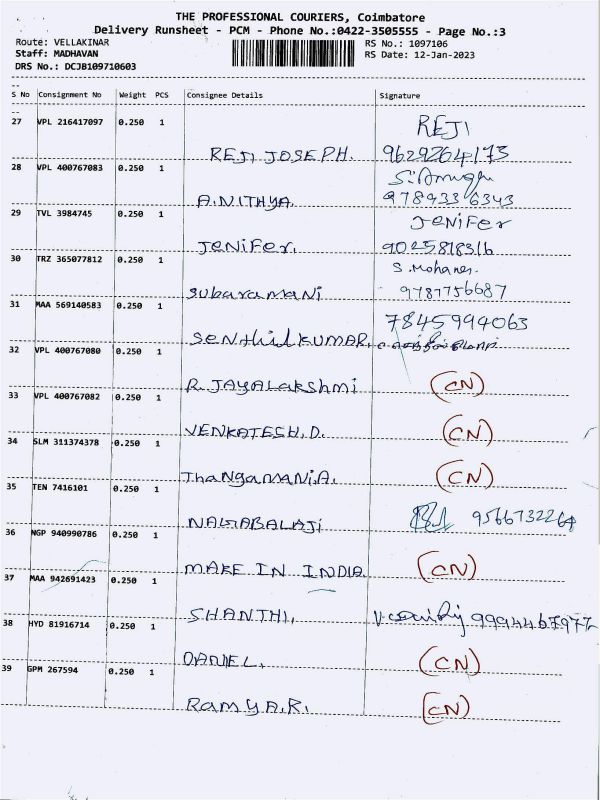 THE PROFESSIONAL COURIERS, Coimbatore
Delivery Runsheet - PCM - Phone No.:0422-3505555 - Page No.:3
Route: VELLAKINAR
Staff: MADHAVAN
DRS No.: DCJB109710603
RS No.: 1097106
RS Date: 12-Jan-2023
S No Consignment No Weight PCS Consignee Details Signature
27 VPL 216417097 0.250 1 REJI
REJI JOSEPH. 9629264173
28 VPL 400767083 0.250 1
A.NITHYA. 9789336343
29 TVL 3984745 0.250 1 JENiFER
JENiFER. 9025818316
30 TRZ 365077812 0.250 1 S.Mohanes.
Subaramani 9787756687
31 MAA 569140583 0.250 1 7845994063
SENthilKUMAR.
32 VPL 400767080 0.250 1
R.JAYALakshmi (CN)
33 VPL 400767082 0.250 1
VENKATESH.D. (CN)
34 SLM 311374378 0.250 1
ThaNgamaNi.A. (CN)
35 TEN 7416101 0.250 1
NAGABALAJi 9566732264
36 NGP 940990786 0.250 1
MAKE IN INDIA (CN)
37 MAA 942691423 0.250 1
SHANTHI, 9994467977
38 HYD 81916714 0.250 1
DANIEL. (CN)
39 GPM 267594 0.250 1
RamyA.R. (CN)